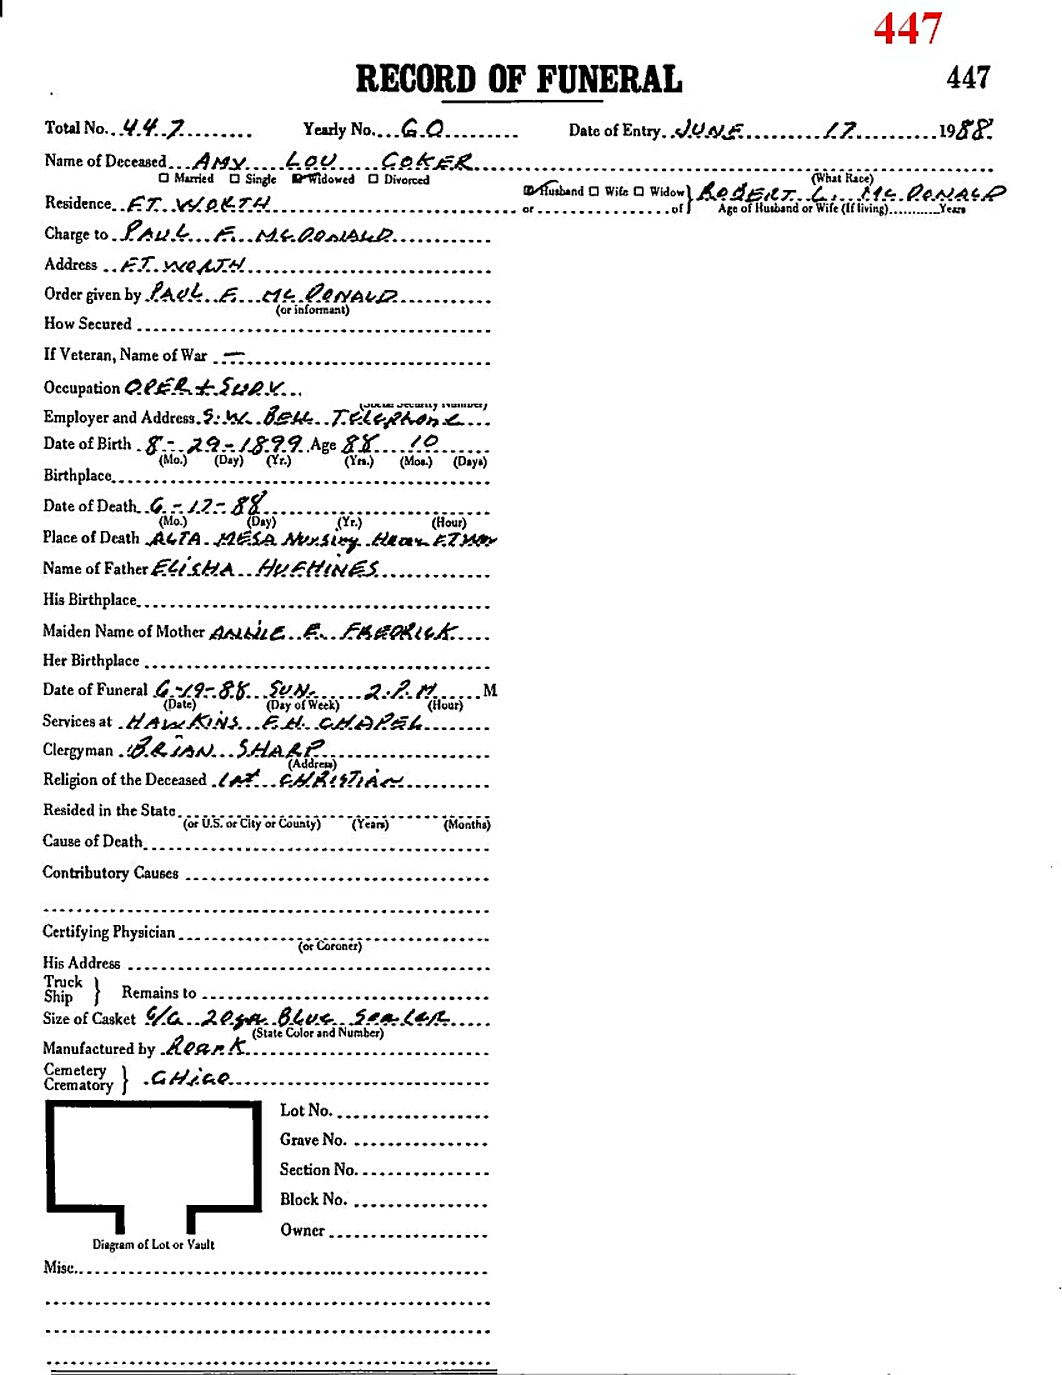 447
RECORD OF FUNERAL 447
Total No. 447 Yearly No. 60 Date of Entry JUNE 17 1988
Name of Deceased AMY LOU COKER
☐ Married ☐ Single ☑ Widowed ☐ Divorced (What Race)
Residence FT. WORTH ☑ Husband ☐ Wife ☐ Widow or of } ROBERT L. MCDONALD
Age of Husband or Wife (If living) Years
Charge to PAUL E. MCDONALD
Address FT. WORTH
Order given by PAUL E. MCDONALD
(or informant)
How Secured
If Veteran, Name of War —
Occupation OPER + SURV.
(Social Security Number)
Employer and Address S.W. BELL Telephone
Date of Birth 8-29-1899 Age 88 10
(Mo.) (Day) (Yr.) (Yrs.) (Mos.) (Days)
Birthplace
Date of Death 6-17-88
(Mo.) (Day) (Yr.) (Hour)
Place of Death ALTA MESA Nursing FTWor
Name of Father ELISHA HUGHINES
His Birthplace
Maiden Name of Mother ANNIE E. FREDRICK
Her Birthplace
Date of Funeral 6-19-88 SUN. 2 P.M. M
(Date) (Day of Week) (Hour)
Services at HAWKINS F.H. CHAPEL
Clergyman BRIAN SHARP
(Address)
Religion of the Deceased 1st CHRISTIAN
Resided in the State
(or U.S. or City or County) (Years) (Months)
Cause of Death
Contributory Causes
Certifying Physician
(or Coroner)
His Address
Truck
Ship } Remains to
Size of Casket 6/6 20ga Blue Sealer
(State Color and Number)
Manufactured by Roark
Cemetery
Crematory } CHICO
Lot No.
Grave No.
Section No.
Block No.
Owner
Diagram of Lot or Vault
Misc.